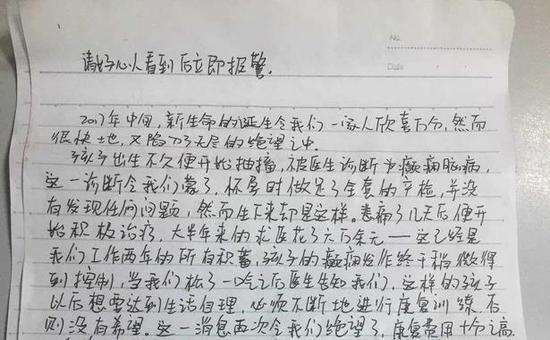 No.
Date
请好心人看到后立即报警.
2017年中间,新生命的诞生令我们一家人欣喜万分,然而
很快地,又陷入了无尽的绝望之中.
孩子出生不久便开始抽搐,被医生诊断为癫痫脑病,
这一诊断令我们蒙了,怀孕时做足了全套的产检,并没
有发现任何问题,然而生下来却是这样.悲痛了几天后便开
始积极治疗,大半年来的求医花了六万余元——这已经是
我们工作两年的所有积蓄,孩子的癫痫发作终于稍微得
到控制,当我们松了一口气之后医生告知我们,这样的孩子
以后想要达到生活自理,必须不断地进行康复训练,否
则没有希望.这一消息再次令我们绝望了,康复费用十分之高.